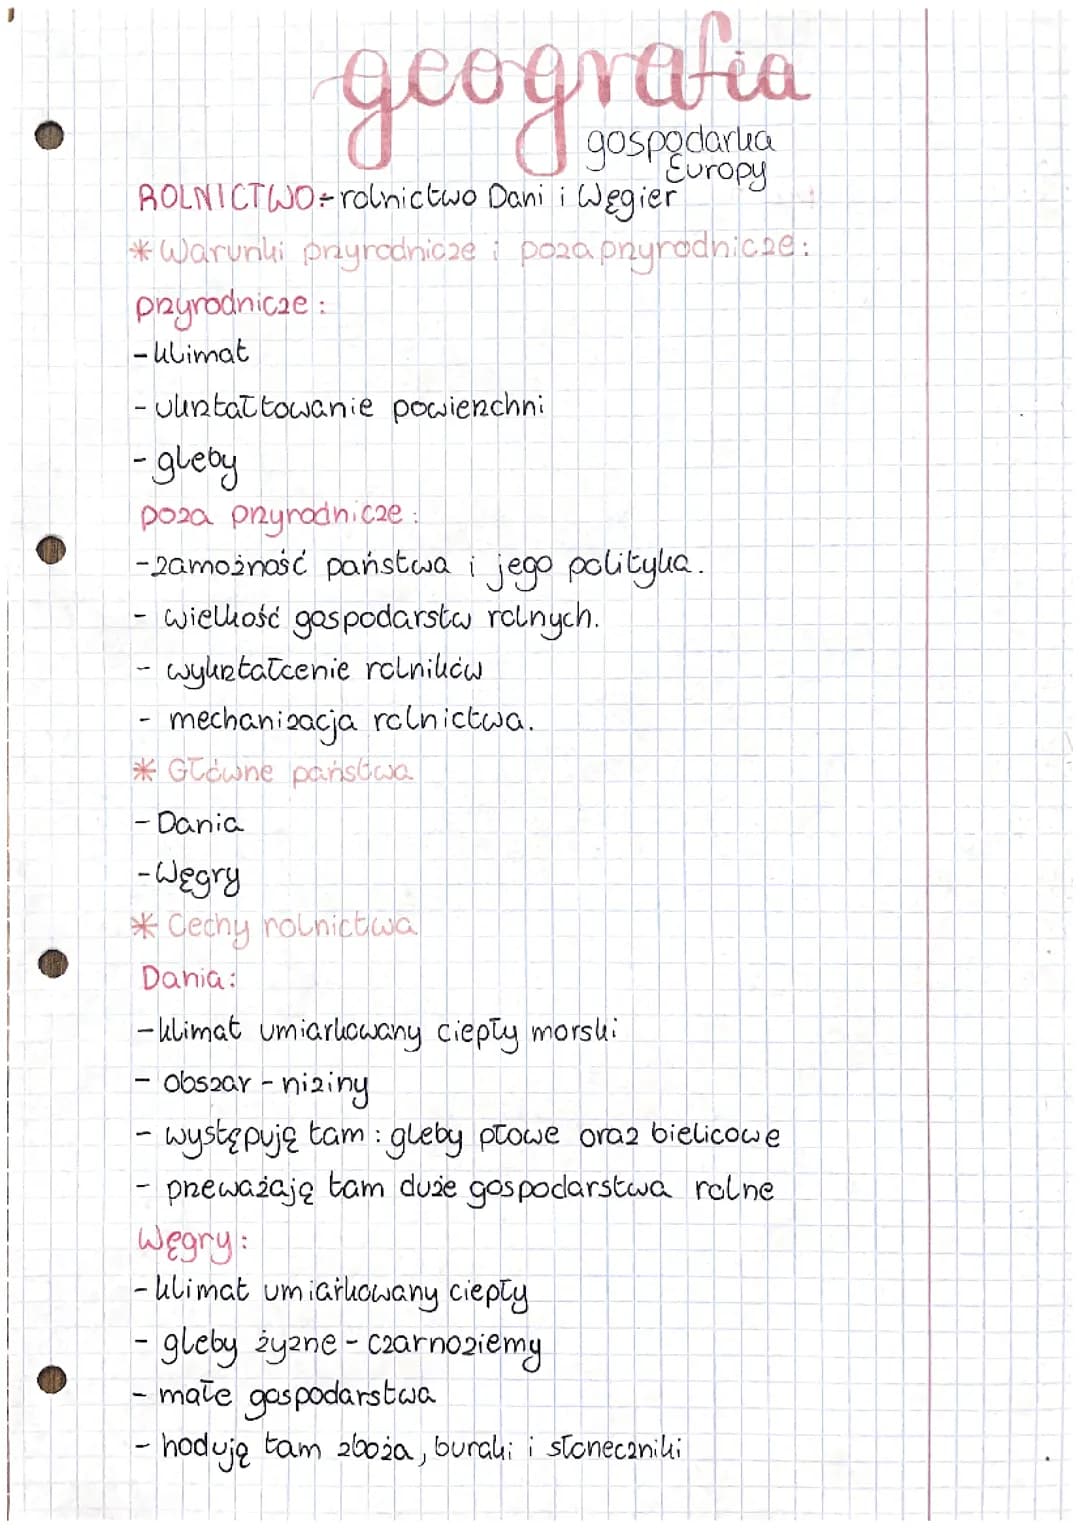 geografia
gospodarka
Europy
ROLNICTWO - rolnictwo Dani i Węgier
* Warunki przyrodnicze i poza przyrodnicze:
przyrodnicze:
- klimat
- ukształtowanie powierzchni
- gleby
poza przyrodnicze:
- zamożność państwa i jego polityka.
- wielkość gospodarstw rolnych.
- wykształcenie rolników
- mechanizacja rolnictwa.
* Główne państwa
- Dania
- Węgry
* Cechy rolnictwa
Dania:
- klimat umiarkowany ciepły morski
- obszar - niziny
- występuję tam: gleby płowe oraz bielicowe
- przeważaję tam duże gospodarstwa rolne
Węgry:
- klimat umiarkowany ciepły
- gleby żyzne - czarnoziemy
- małe gospodarstwa
- hoduję tam zboża, buraki i słoneczniki